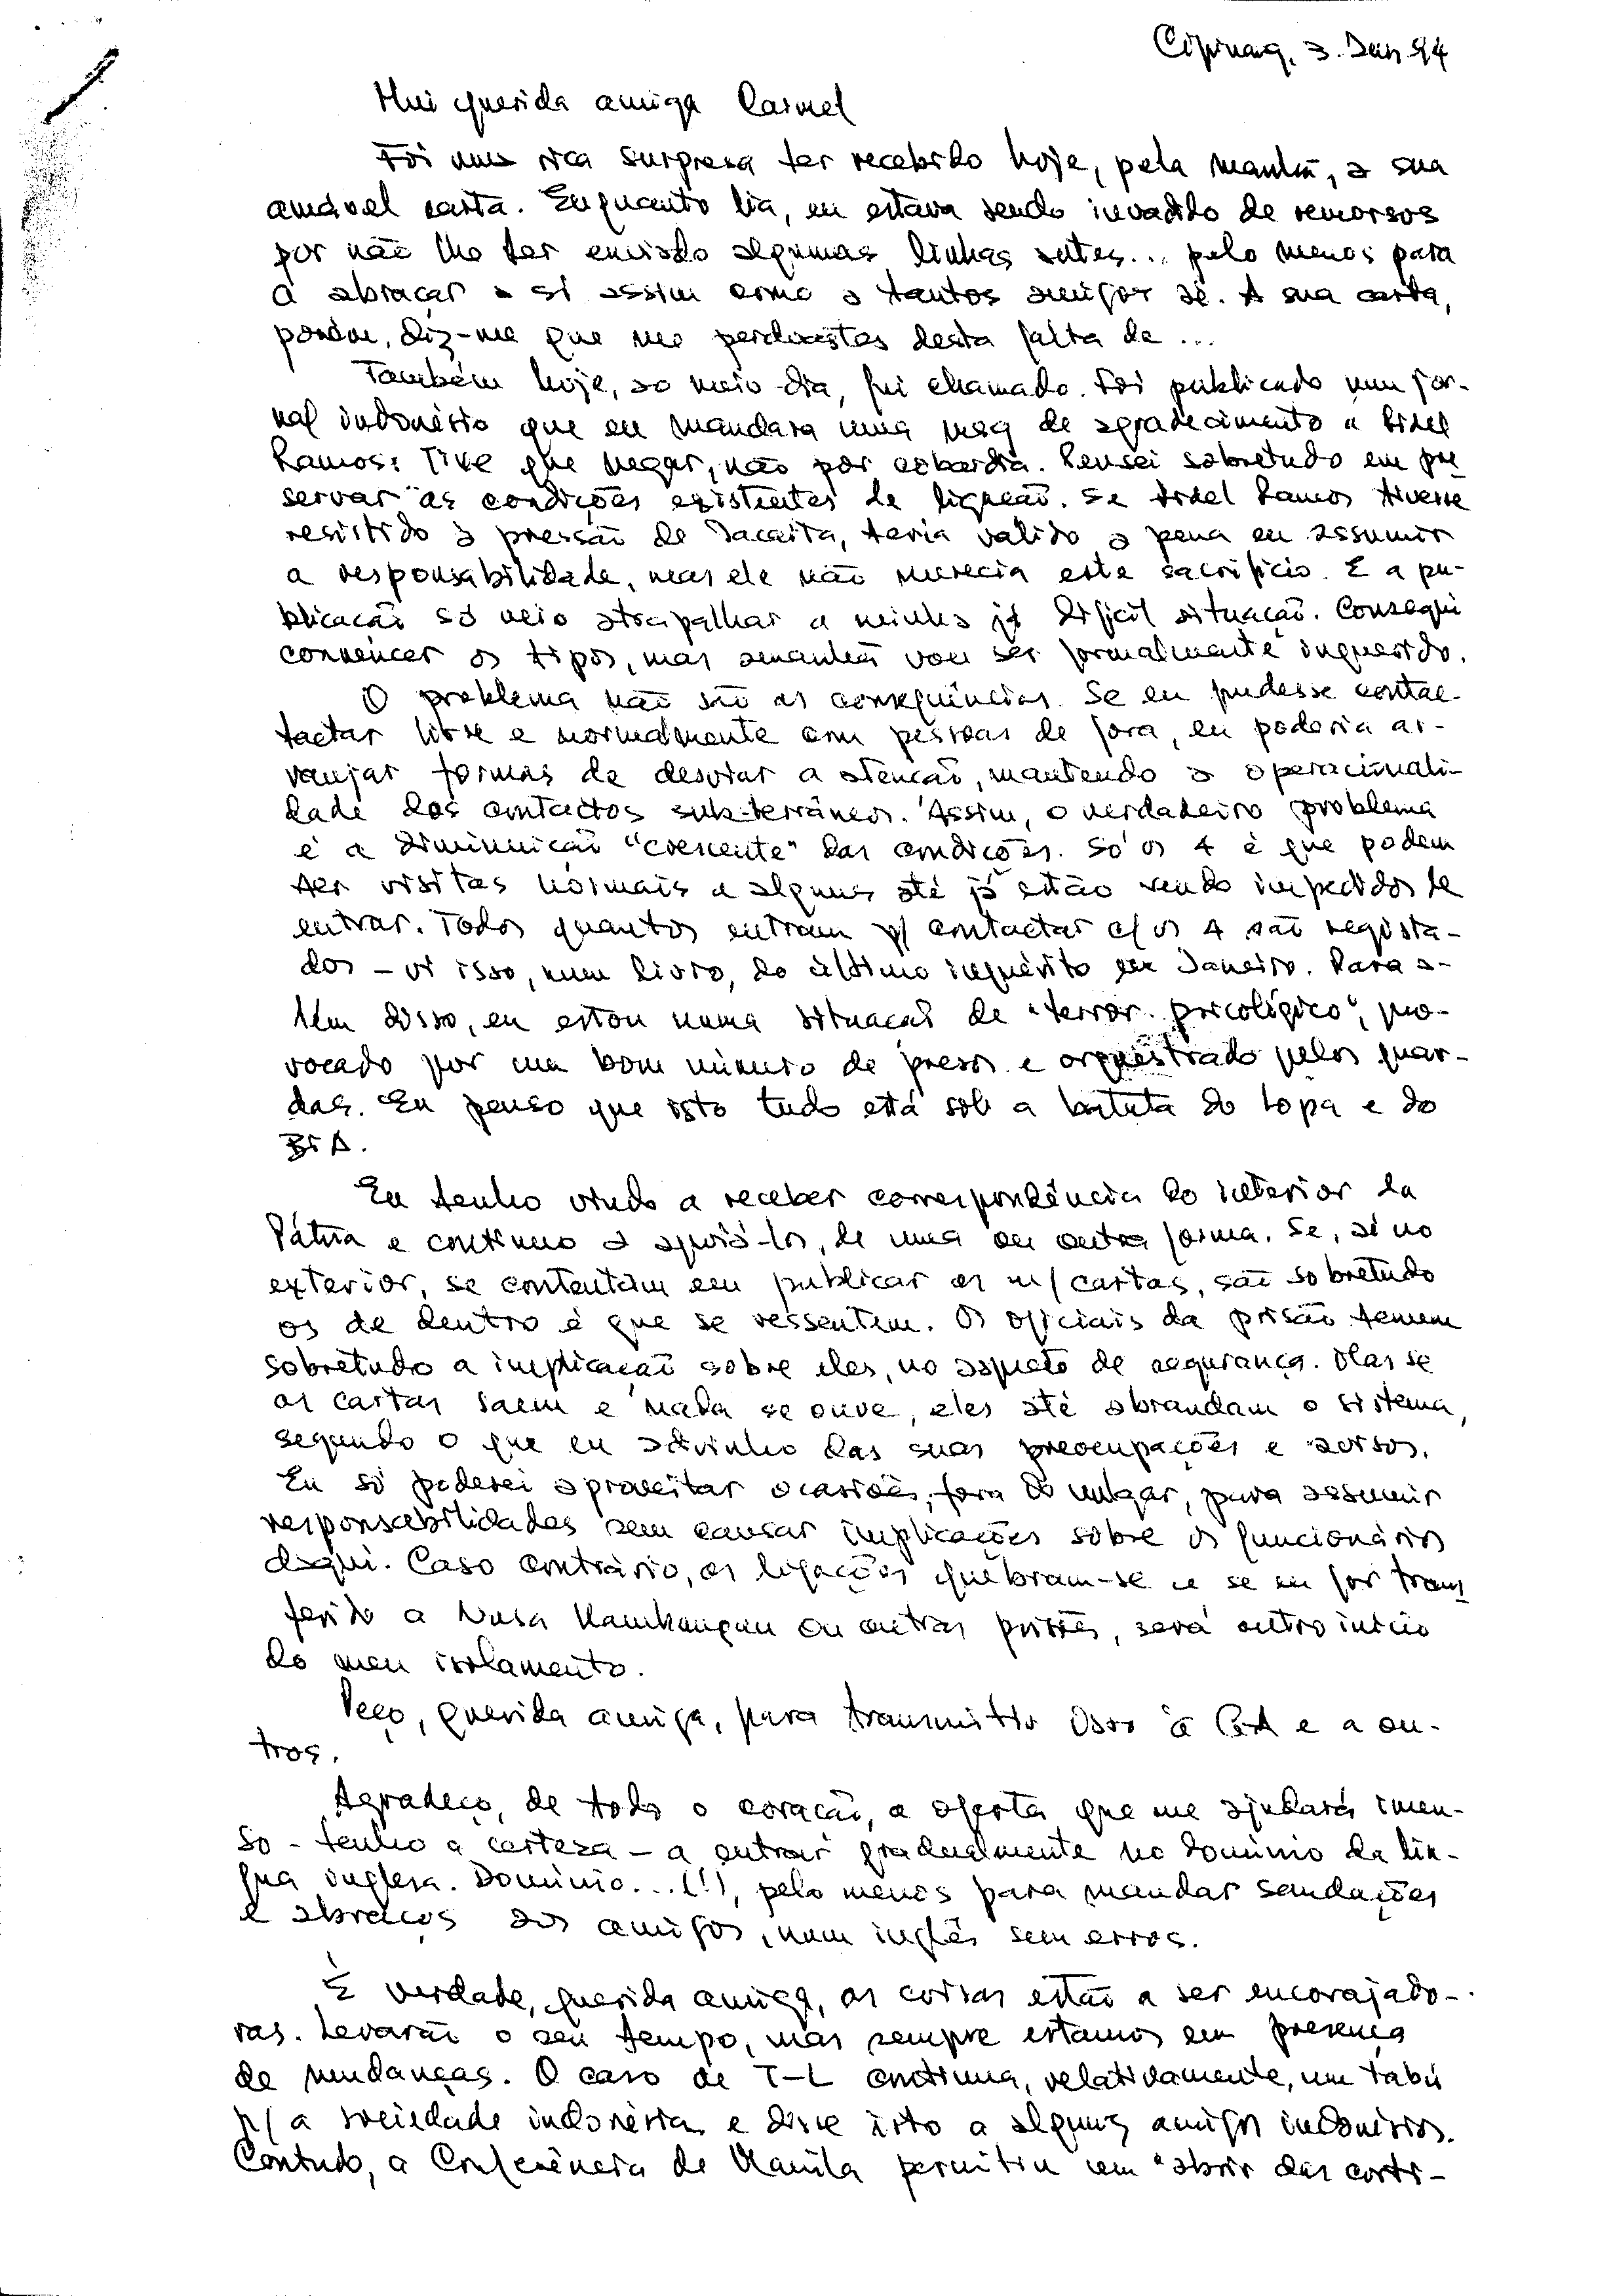 Cipinang, 3. Jun 94
Mui querida amiga Carmel
Foi uma rica surpresa ter recebido hoje, pela manhã, a sua
amável carta. Enquanto lia, eu estava sendo invadido de remorsos
por não lhe ter enviado algumas linhas antes... pelo menos para
a abraçar a si assim como a tantos amigos aí. A sua carta,
porém, diz-me que me perdoastes desta falta de ...
Também hoje, ao meio-dia, fui chamado. Foi publicado num jor-
nal indonésio que eu mandara uma msg de agradecimento a Fidel
Ramos. Tive que negar, não por cobardia. Pensei sobretudo em pre
servar as condições existentes de ligação. Se Fidel Ramos tivesse
resistido à pressão de Jacarta, teria valido a pena eu assumir
a responsabilidade, mas ele não merecia este sacrifício. E a pu-
blicação só veio atrapalhar a minha já difícil situação. Consegui
convencer os tipos, mas amanhã vou ser formalmente inquerido.
O problema não são as consequências. Se eu pudesse contac-
tactar livre e normalmente com pessoas de fora, eu poderia ar-
ranjar formas de desviar a atenção, mantendo a operacionali-
dade dos contactos subterrâneos. Assim, o verdadeiro problema
é a diminuição "crescente" das condições. Só os 4 é que podem
ter visitas normais e alguns até já estão sendo impedidos de
entrar. Todos quantos entram p/ contactar c/ os 4 são regista-
dos - vi isso, num livro, do último inquérito em Janeiro. Para a-
lém disso, eu estou numa situação de "terror psicológico", pro-
vocado por um bom número de presos e orquestrado pelos guar-
das. Eu penso que isto tudo está sob a batuta do Lopa e do
BIA.
Eu tenho vindo a receber correspondência do interior da
Pátria e continuo a apoiá-los, de uma ou outra forma. Se, aí no
exterior, se contentam em publicar as m/ cartas, são sobretudo
os de dentro é que se ressentem. Os oficiais da prisão temem
sobretudo a implicação sobre eles, no aspecto de segurança. Mas se
as cartas saem e nada se ouve, eles até abrandam o sistema,
segundo o que eu adivinho das suas preocupações e avisos.
Eu só poderei aproveitar ocasiões, fora do vulgar, para assumir
responsabilidades sem causar implicações sobre os funcionários
daqui. Caso contrário, as ligações quebram-se e se eu for trans
ferido a Nusa Kambangan ou outras prisões, será outro início
do meu isolamento.
Peço, querida amiga, para transmitir isso à e a ou-
tros.
Agradeço, de todo o coração, a oferta que me ajudará imen-
so - tenho a certeza - a entrar gradualmente no domínio da lín-
gua inglesa. Domínio... (!), pelo menos para mandar saudações
e abraços aos amigos, num inglês sem erros.
É verdade, querida amiga, as coisas estão a ser encorajado-
ras. Levarão o seu tempo, mas sempre estamos em presença
de mudanças. O caso de T-L continua, relativamente, um tabú
p/ a sociedade indonésia e disse isto a alguns amigos indonésios.
Contudo, a Conferência de Manila permitiu um "abrir das corti-